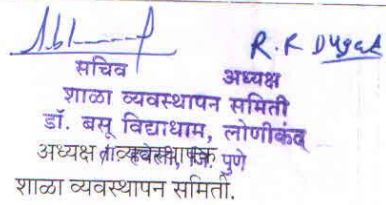 R.R Dugad
सचिव अध्यक्ष
शाळा व्यवस्थापन समिती
डॉ. बसू विद्याधाम, लोणीकंद
ता. हवेली, जि. पुणे
अध्यक्ष / व्यवस्थापक
शाळा व्यवस्थापन समिती.